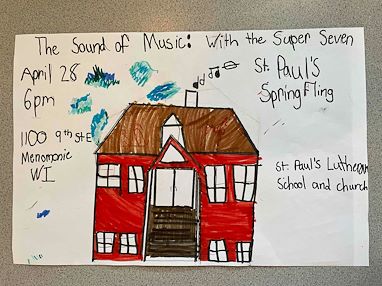 The Sound of Music: With the Super Seven
April 28
6pm
St. Paul's
Spring Fling
1100 9th St E
Menomonie
WI
St. Paul's Lutheran
School and church